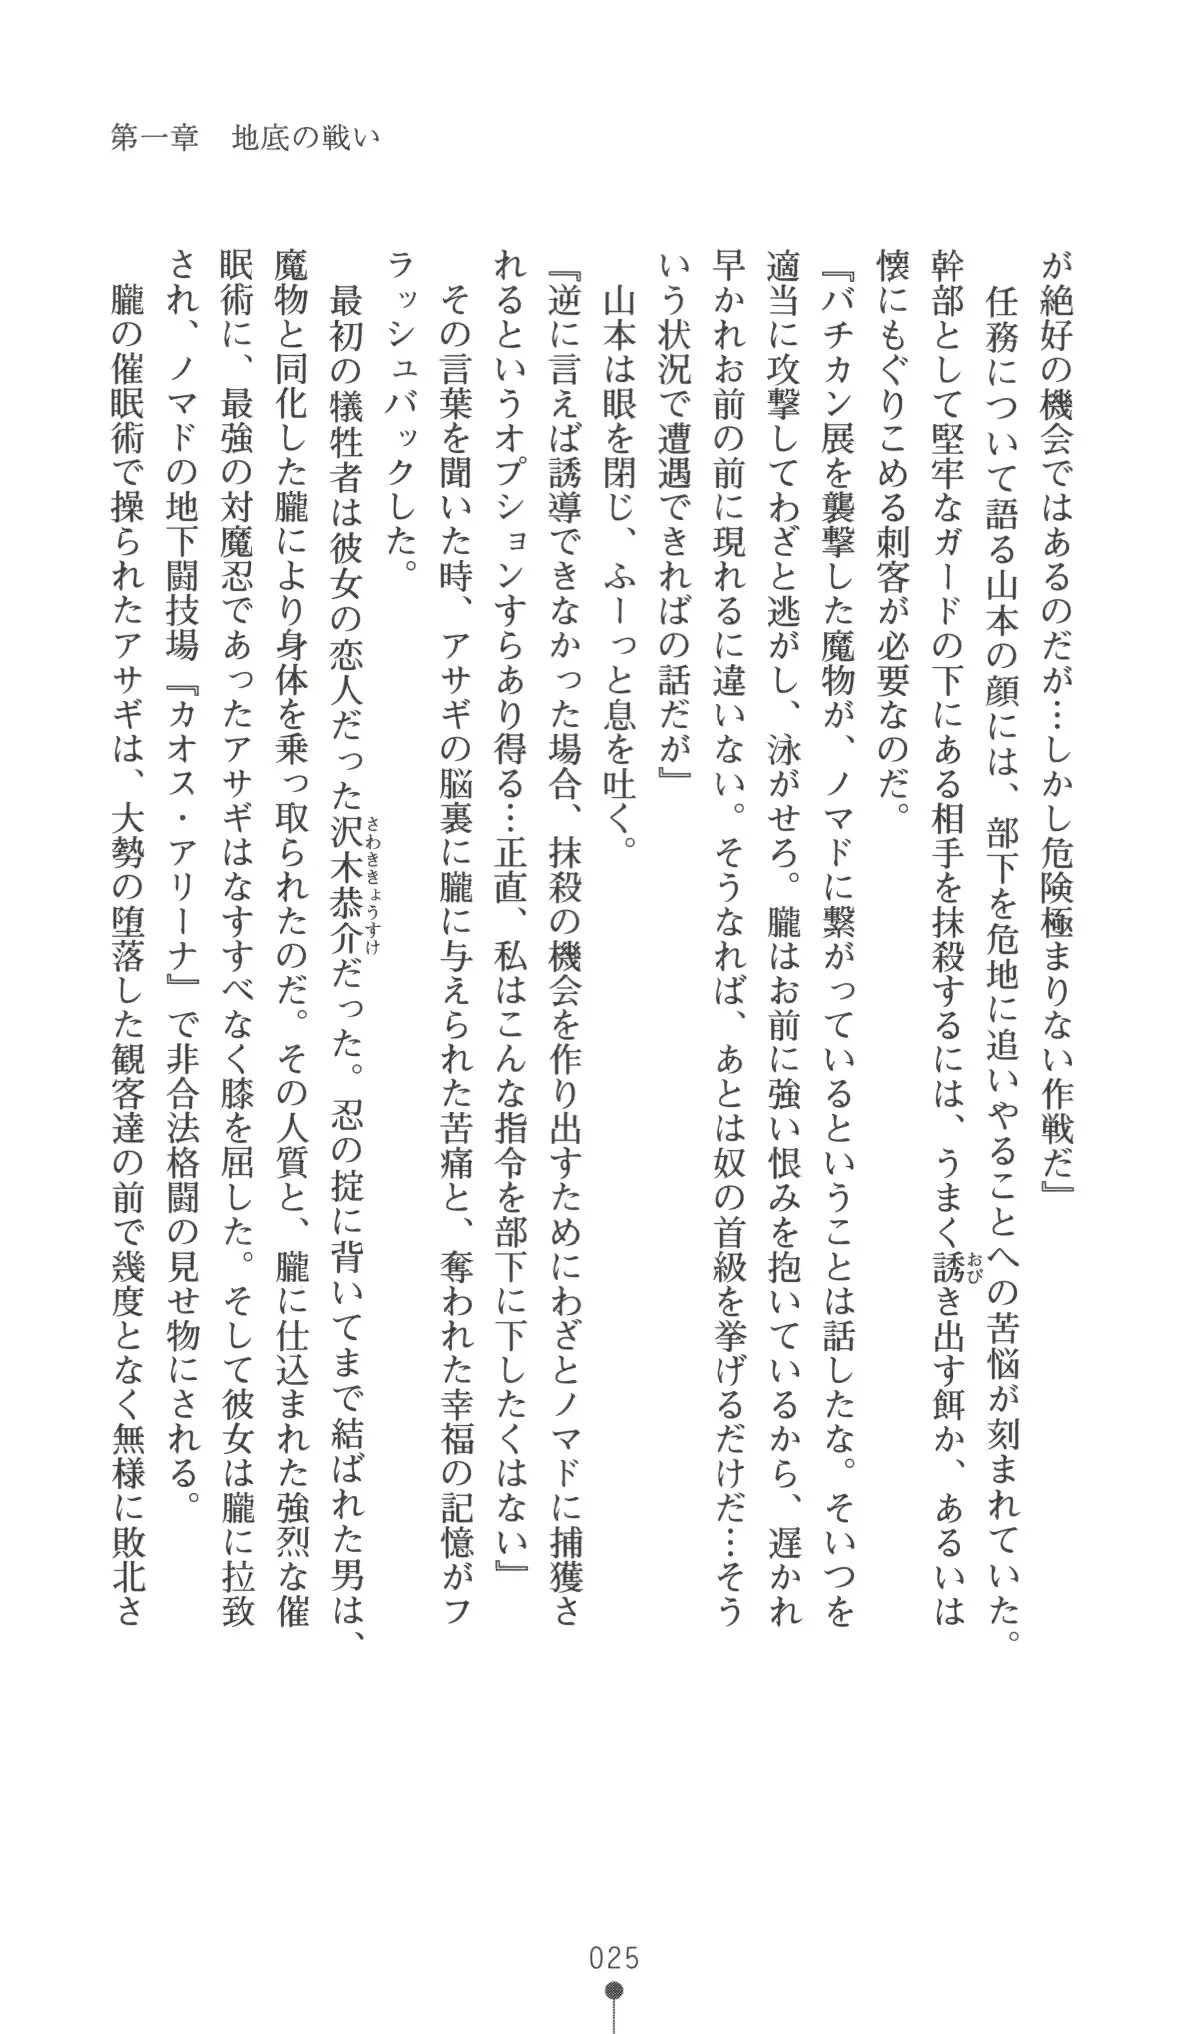 第一章　地底の戦い
が絶好の機会ではあるのだが…しかし危険極まりない作戦だ』
　任務について語る山本の顔には、部下を危地に追いやることへの苦悩が刻まれていた。
幹部として堅牢なガードの下にある相手を抹殺するには、うまく誘き出す餌か、あるいは
おび
懐にもぐりこめる刺客が必要なのだ。
『バチカン展を襲撃した魔物が、ノマドに繋がっているということは話したな。そいつを
適当に攻撃してわざと逃がし、泳がせろ。朧はお前に強い恨みを抱いているから、遅かれ
早かれお前の前に現れるに違いない。そうなれば、あとは奴の首級を挙げるだけだ…そう
いう状況で遭遇できればの話だが』
　山本は眼を閉じ、ふーっと息を吐く。
『逆に言えば誘導できなかった場合、抹殺の機会を作り出すためにわざとノマドに捕獲さ
れるというオプションすらあり得る…正直、私はこんな指令を部下に下したくはない』
　その言葉を聞いた時、アサギの脳裏に朧に与えられた苦痛と、奪われた幸福の記憶がフ
ラッシュバックした。
　最初の犠牲者は彼女の恋人だった沢木恭介だった。忍の掟に背いてまで結ばれた男は、
さわききょうすけ
魔物と同化した朧により身体を乗っ取られたのだ。その人質と、朧に仕込まれた強烈な催
眠術に、最強の対魔忍であったアサギはなすすべなく膝を屈した。そして彼女は朧に拉致
され、ノマドの地下闘技場『カオス・アリーナ』で非合法格闘の見せ物にされる。
　朧の催眠術で操られたアサギは、大勢の堕落した観客達の前で幾度となく無様に敗北さ
025